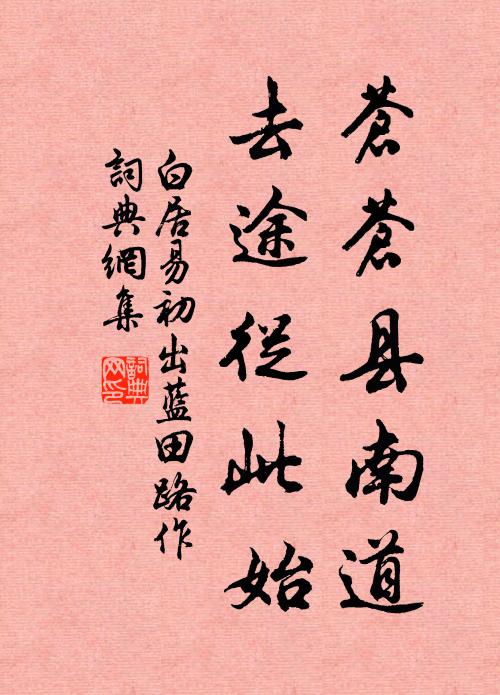 蒼蒼县南道
去途從此始
白居易初出蓝田路作
詞典網集
詞典网印